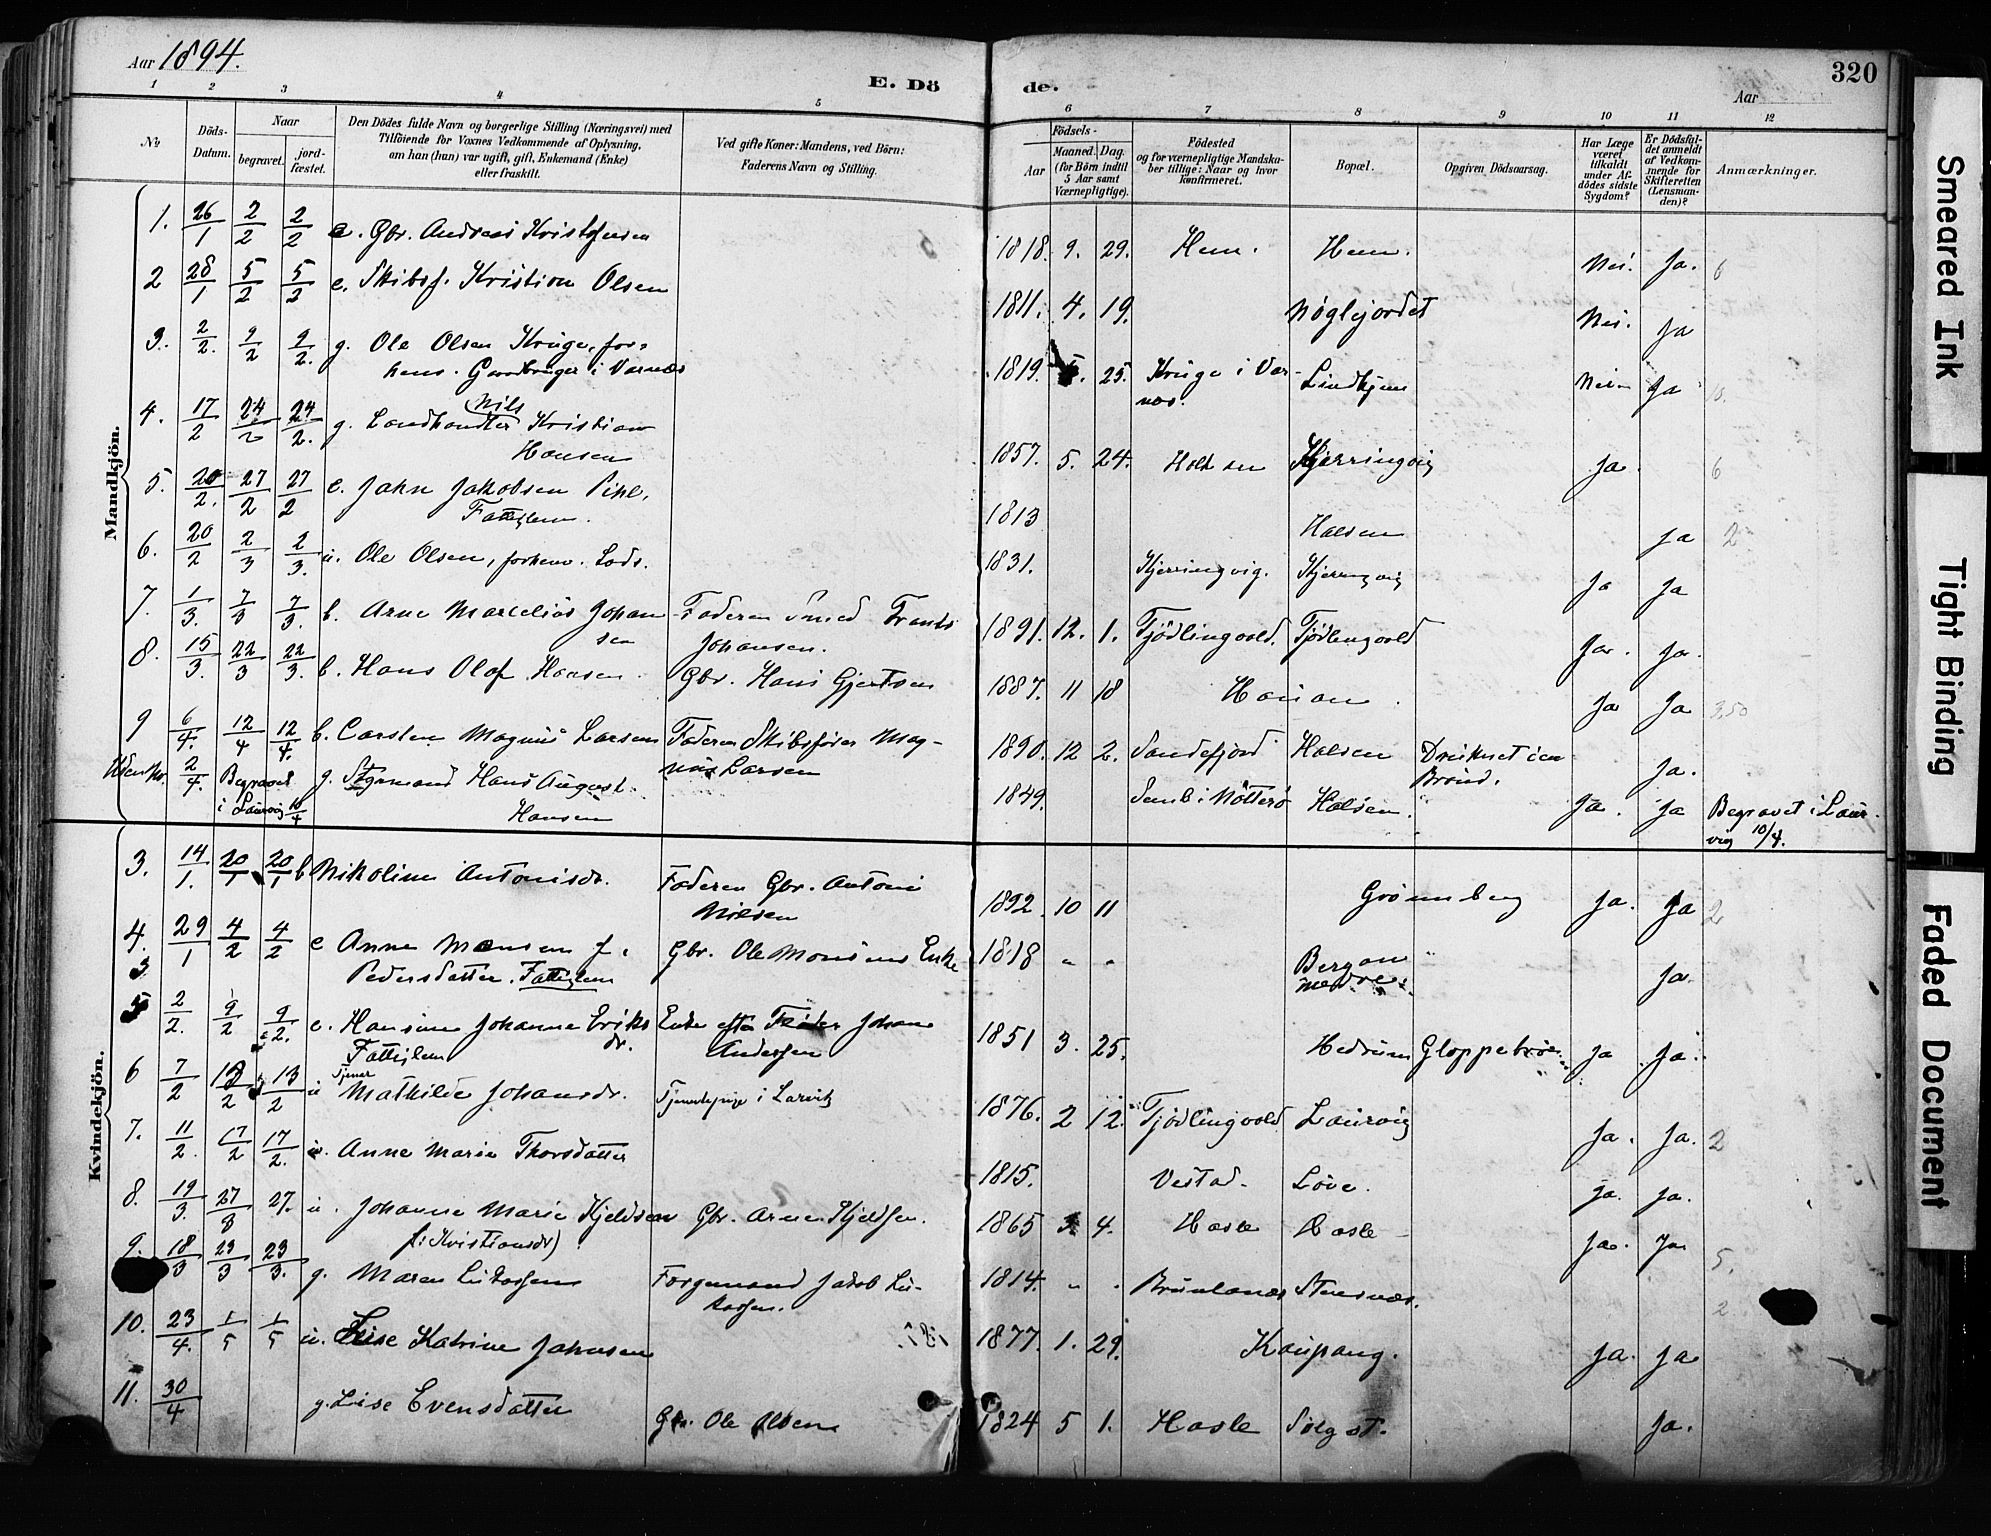 Aar 1894.
E. Döde.
320
Aar
1 2 3 4 5 6 7 8 9 10 11 12
No
Döds-Datum.
Naar
begravet.
jord-fæstet.
Den Dödes fulde Navn og borgerlige Stilling (Næringsvei) med
Tilföiende for Voxnes Vedkommende af Oplysning,
om han (hun) var ugift, gift, Enkemand (Enke)
eller fraskilt.
Ved gifte Koner: Mandens, ved Börn:
Faderens Navn og Stilling.
Födsels-
Aar
Maaned. Dag.
(for Börn indtil
5 Aar samt
Værnepligtige).
Födested
og for værnepligtige Mandska-
ber tillige: Naar og hvor
konfirmeret.
Bopæl.
Opgiven Dödsaarsag.
Har Læge
været
tilkaldt
under Af-
dödes sidste
Sygdom?
Er Dödsfal-
det anmeldt
af Vedkom-
mende for
Skifteretten
(Lensman-
den)?
Anmærkninger.
Mandkjön.
1. 26/1 2/2 2/2 e. Gbr. Andreas Kristofersen 1818. 9. 29. Hem. Hem. Nei. Ja. 6
2 28/1 5/2 5/2 e. Skibsf. Kristian Olsen 1811. 4. 19. Nøglejordet Nei. Ja
3. 2/2. 9/2 9/2. g. Ole Olsen Kruge, for-
hens. Gaardbruger i Varnæs 1819. 25. Kruge i Var-
næs. Lindhjem Nei Ja
4. 17/2 24/2 24/2. g. Landhandler Nils Kristian
Hansen 1857. 5. 24. Kjerringvig Ja. 6
5. 20/2. 27/2 27/2 e. Jahn Jakobsen Pihl,
Fattiglem. 1813 Halsen Ja 2
6. 20/2 2/3 2/3. u. Ole Olsen, forhenv. Lods. 1831. Kjerringvig. Kjerringvig Ja Ja
7. 1/3. 7/3 7/3. b. Arne Marcelius Johan-
sen Faderen Smed Frants
Johansen. 1891. 12. 1. Tjødlingvold. Tjødlingvold Ja. Ja.
8. 15/3. 22/3 22/3. b. Hans Olaf Hansen. Gbr. Hans Gjertsen 1887. 11 18 Ja Ja 3,50
9 6/4. 12/4 12/4. b. Carsten Magnus Larsen Faderen Skibsfører Mag-
nus Larsen 1890. 12 2. Sandefjord Halsen Druknet i en
Brønd. Ja.
Uden No. 2/4. Begravet
i Laurvig 10/4 g. Styrmand Hans August
Hansen 1849. Sem i Nøtterø Halsen. Ja. Ja Begravet i Laur-
vig 10/4.
Kvindekjön.
3. 14/1. 20/1 20/1 b Nikoline Antonisdr. Faderen Gbr. Antoni
Nilsen 1892. 10 11 Grønneberg Ja. Ja 2
4. 29/1 4/2 4/2 e Anne Monsen f.
Pedersdatter. Fattiglem Gbr. Ole Monsens Enke 1818 " " Bergan
nedre. Ja.
5 2/2. 9/2 9/2. e. Hansine Johanne Eriks
dr. Fattiglem Enke efter Johan
Andersen 1851 3. 25. Hedrum Ja Ja.
6 7/2 13/2 13/2 u Tjener Mathilde Johansdr. Tjenestepige i Larvik 1876. 2 12. Tjødlingvold Laurvig Ja. Ja. 2
7. 11/2. 17/2 17/2. u. Anne Marie Thorsdatter 1815. Vestad. Løve. Ja. Ja.
8. 19/3. 27/3 27. u. Johanne Marie Kjeldsen
f. Kristiansdr) Gbr. Arne Kjeldsen. 1865 4. Hasle Hasle Ja. Ja 5.
9. 18/3 23/3 23/3. g. Maren Lukassen Færgemand Jakob Lu-
kassen. 1814. " . Brunlanæs Stensnæs. 2.
10. 23/4. 1/5 1/5 u. Lise Katrine Jahnsen 1877. 1. 29. Kaupang. Ja. Ja.
11. 30/4 g. Lise Evensdatter Gbr. Ole Olsen 1824 5 1. Hasle Ja.
Smeared Ink
Tight Binding
Faded Document